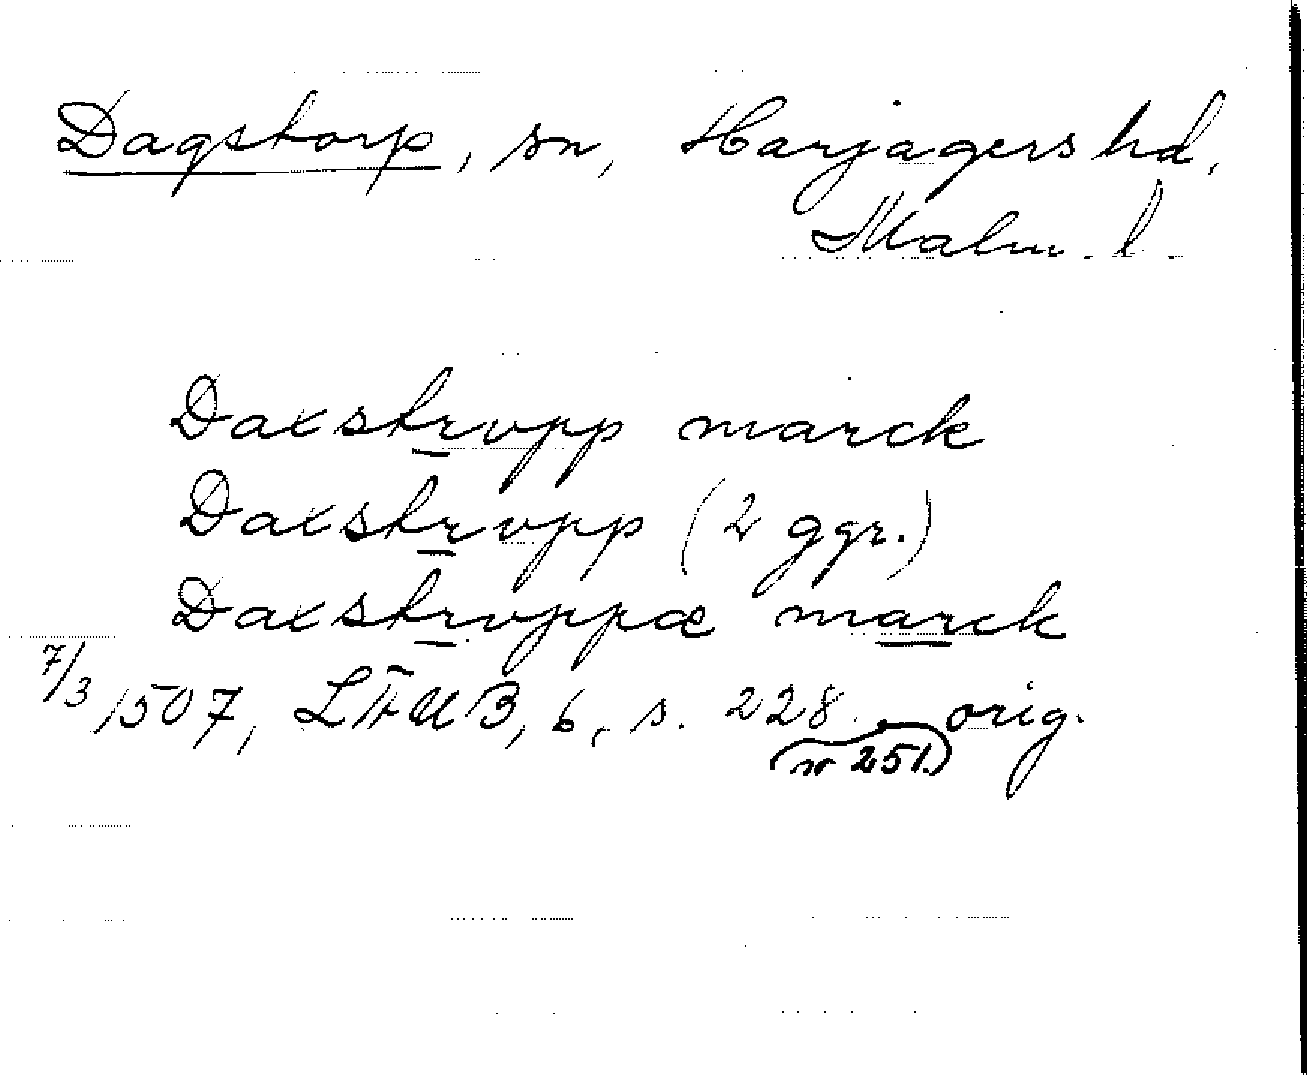 Dagstorp, sn, Harjagers hd,
Malm. l.
Daxstrvpp marck
Daxstrvpp (2 ggr.)
Daxstrvppæ marck
7/3 1507, LÄUB, 6, s. 228. orig.
(nr 251.)